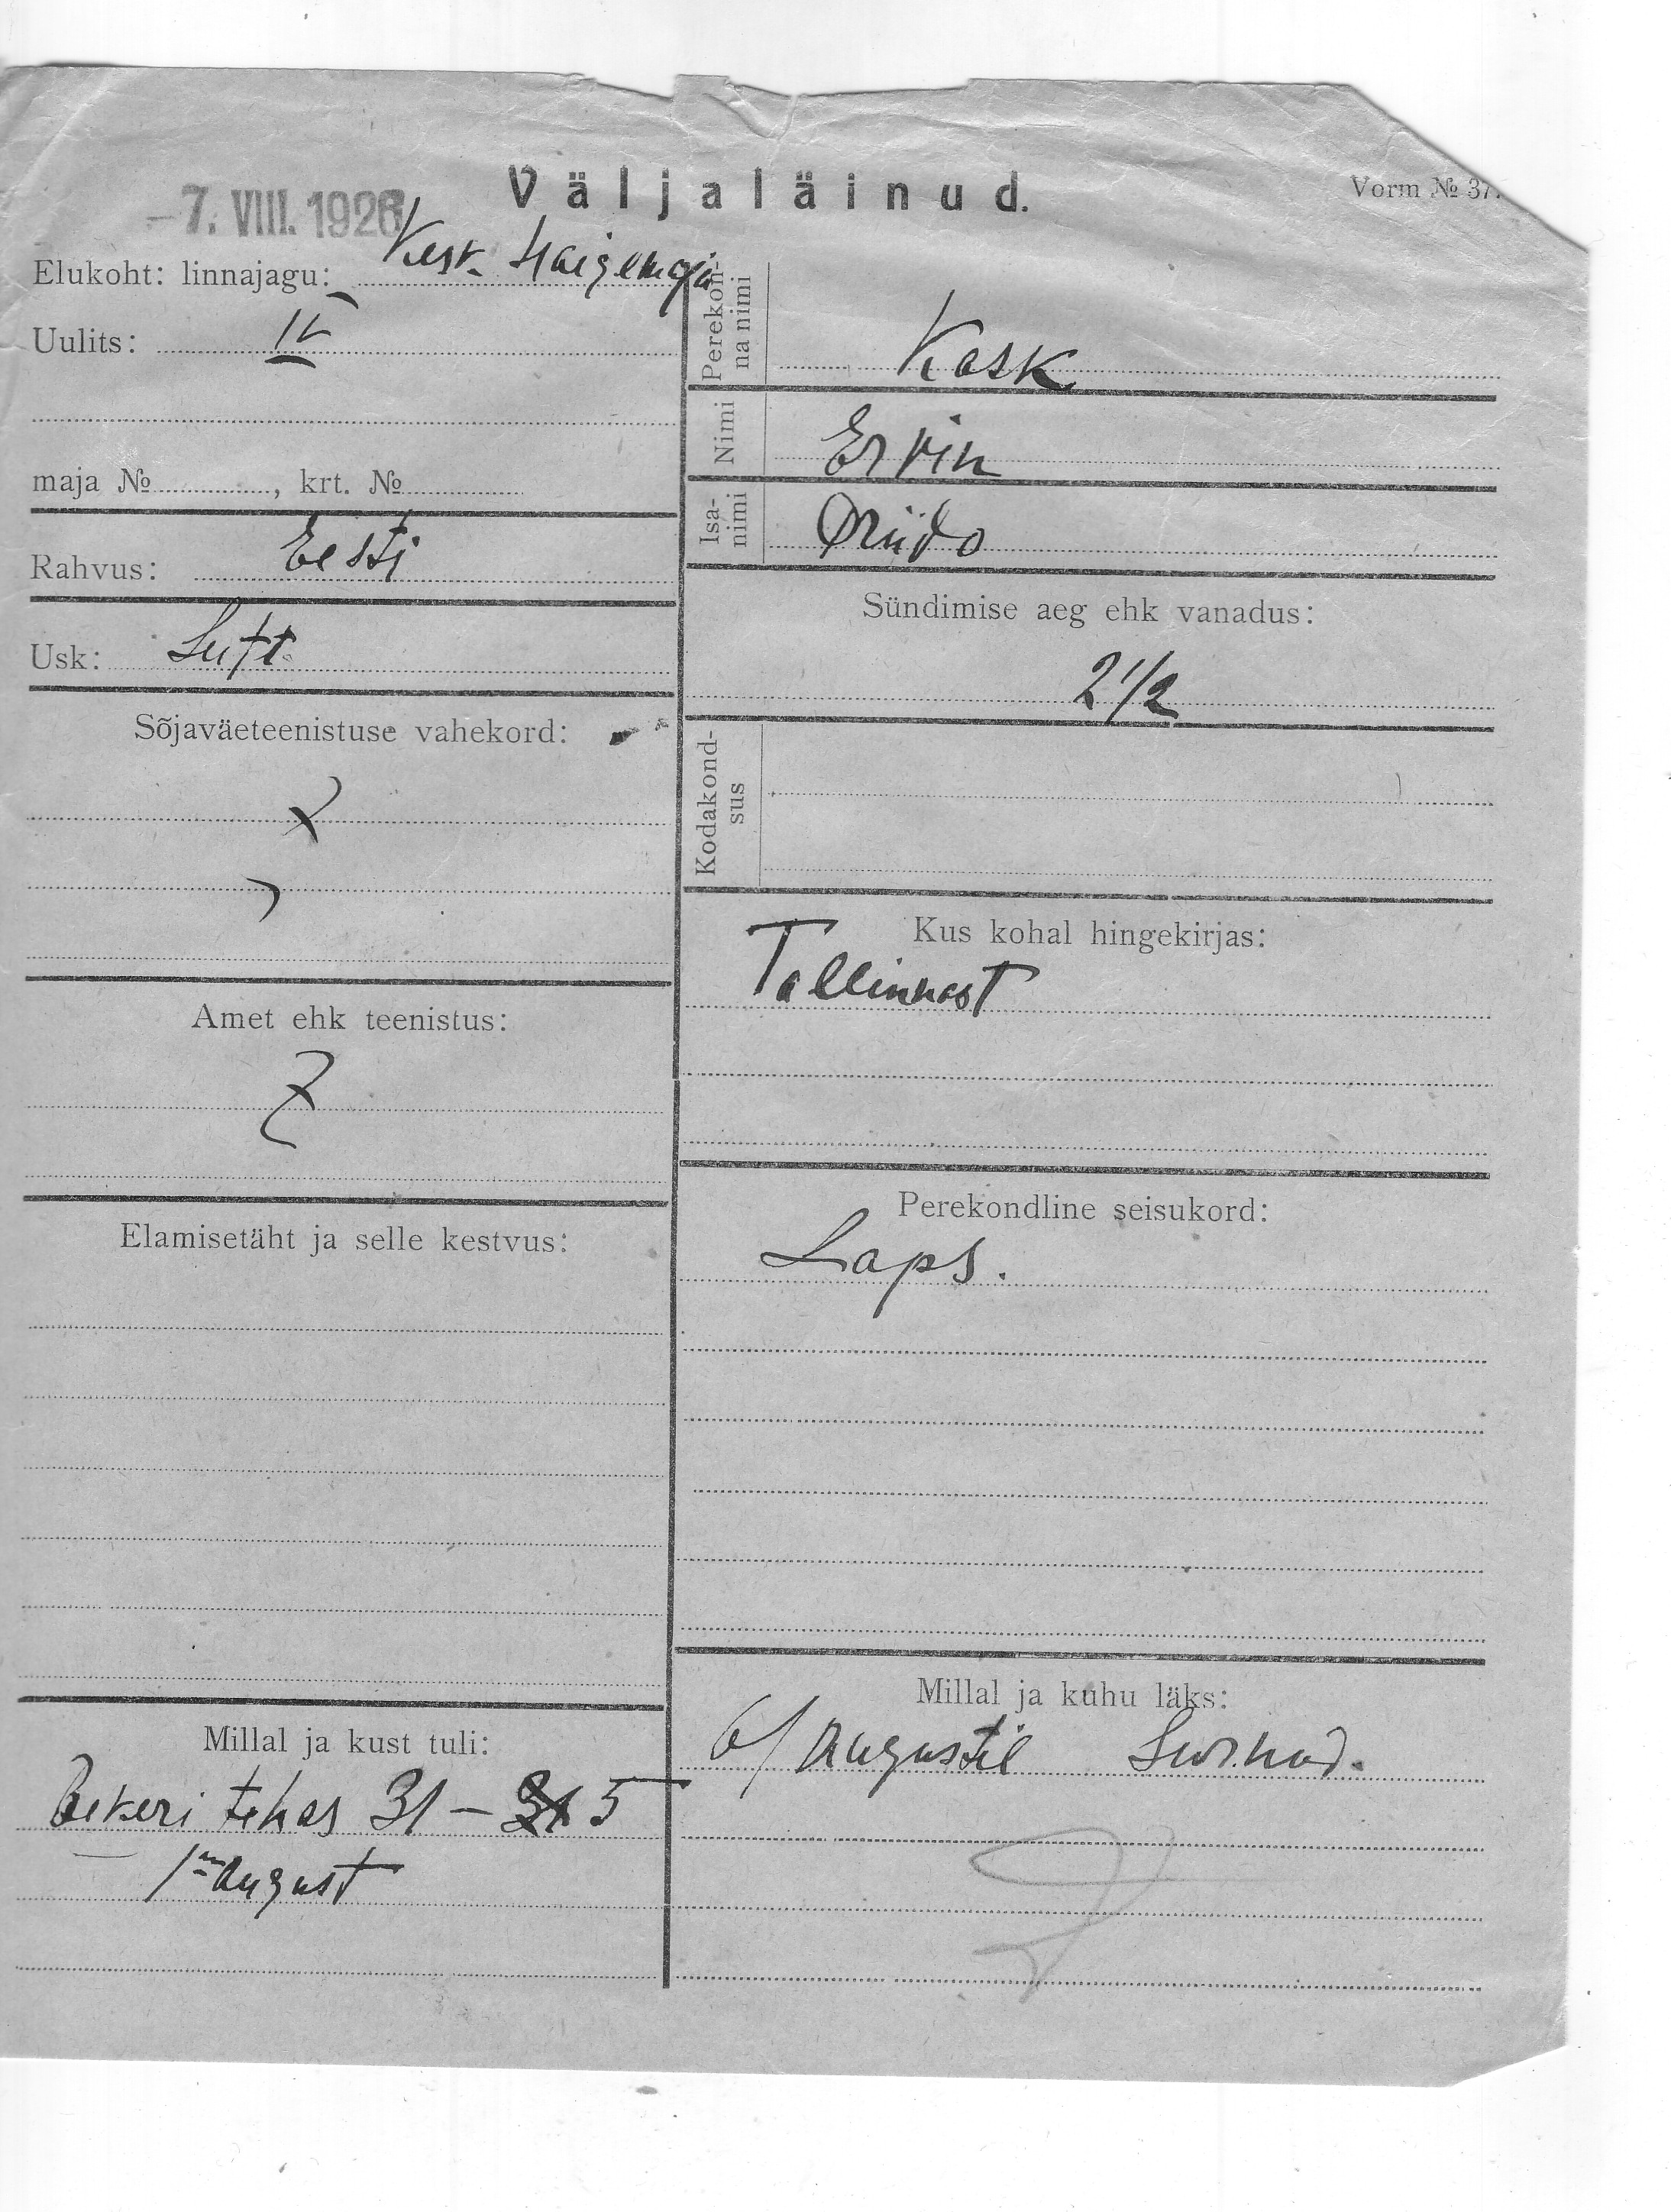 Väljaläinud.
Vorm № 37.
– 7. VIII. 1926
Elukoht: linnajagu: Kesk. Haigemaja
Uulits: IV
maja № , krt. №
Rahvus: Eesti
Usk: Lutt.
Sõjaväeteenistuse vahekord:
Amet ehk teenistus:
Elamisetäht ja selle kestvus:
Millal ja kust tuli:
Bekeri tehas 31 – 5
1 August
Perekon-
na nimi Kask
Nimi Ervin
Isa-
nimi
Sündimise aeg ehk vanadus:
2 1/2
Kodakond-
sus
Kus kohal hingekirjas:
Tallinnast
Perekondline seisukord:
Laps.
Millal ja kuhu läks:
6/ Augustil Surnud.